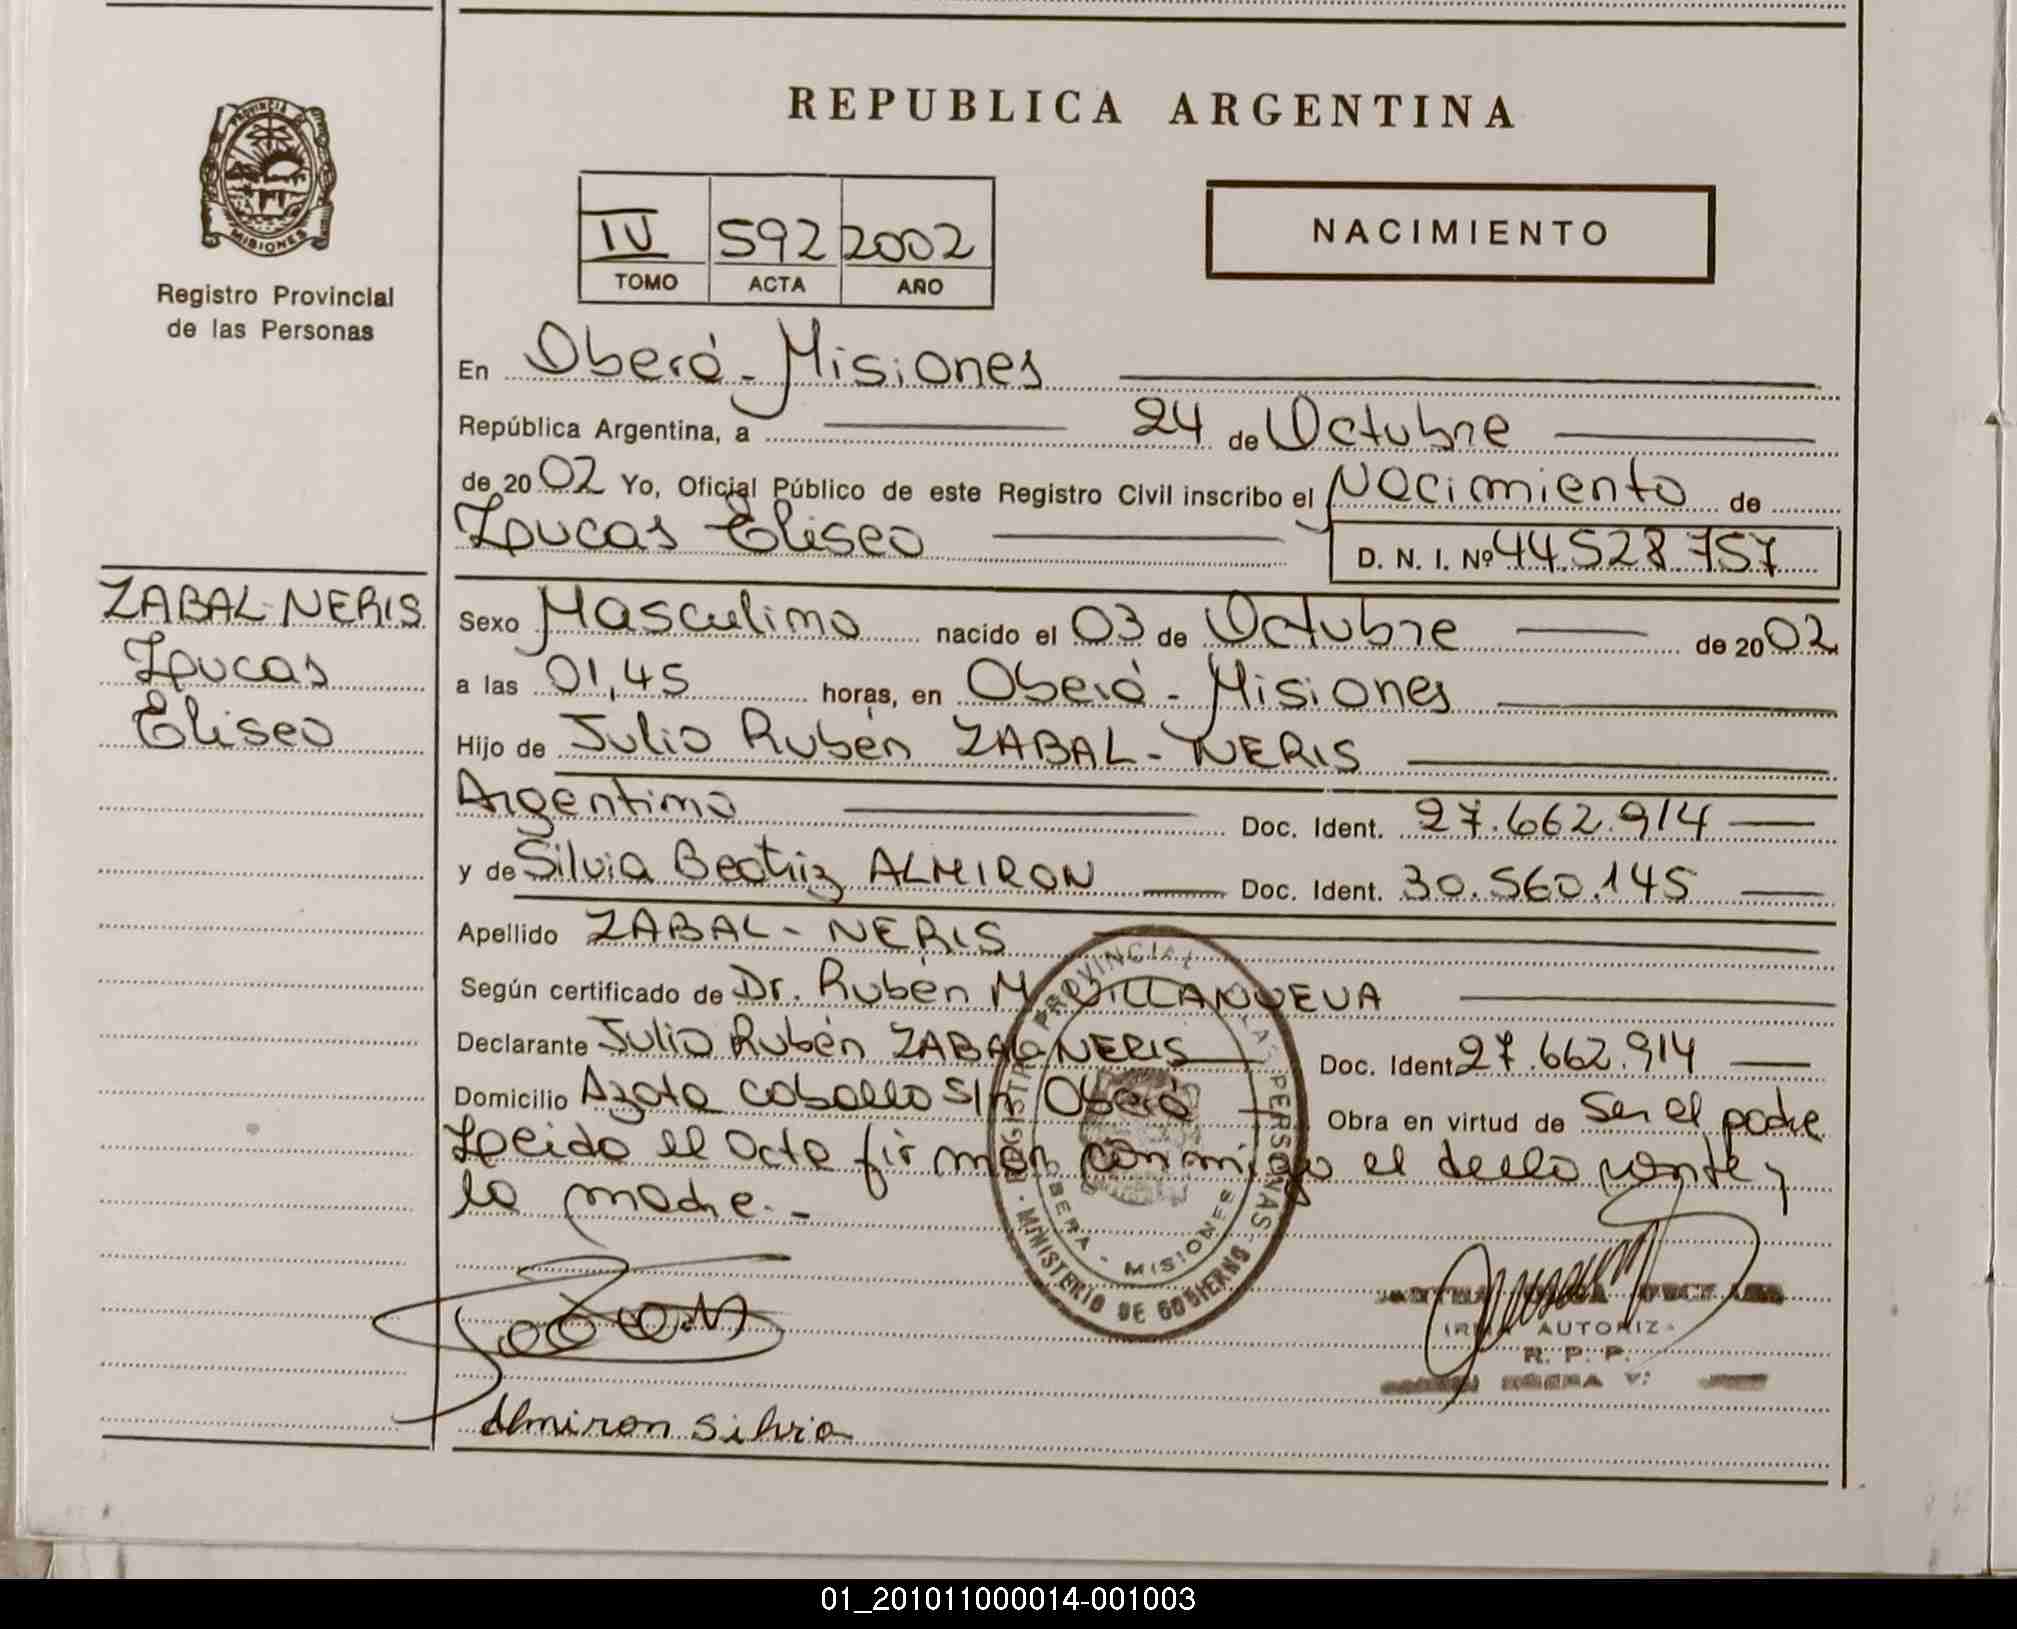 REPUBLICA ARGENTINA
PROVINCIA DE MISIONES
Registro Provincial
de las Personas
IV 592 2002
TOMO ACTA AÑO
NACIMIENTO
En Oberá - Misiones
República Argentina, a 24 de Octubre
de 2002 Yo, Oficial Público de este Registro Civil inscribo el Nacimiento de
Lucas Eliseo
D. N. I. Nº 44.528.757
ZABAL-NERIS
Lucas
Eliseo
Sexo Masculino nacido el 03 de Octubre de 2002
a las 01,45 horas, en Oberá - Misiones
Hijo de Julio Rubén ZABAL - NERIS
Argentino Doc. Ident. 27.662.914
y de Silvia Beatriz ALMIRON Doc. Ident. 30.560.145
Apellido ZABAL - NERIS
Según certificado de Dr. Rubén M. VILLANUEVA
Declarante Julio Rubén ZABAL NERIS Doc. Ident. 27.662.914
Domicilio Azota caballo S/n Oberá Obra en virtud de Ser el padre
Leido el acta firman conmigo el declarante y
la madre. -
REGISTRO PROVINCIAL DE LAS PERSONAS - MINISTERIO DE GOBIERNO
OBERA - MISIONES
FIRMA AUTORIZ.
R. P. P.
Almiron Silvia
01_201011000014-001003